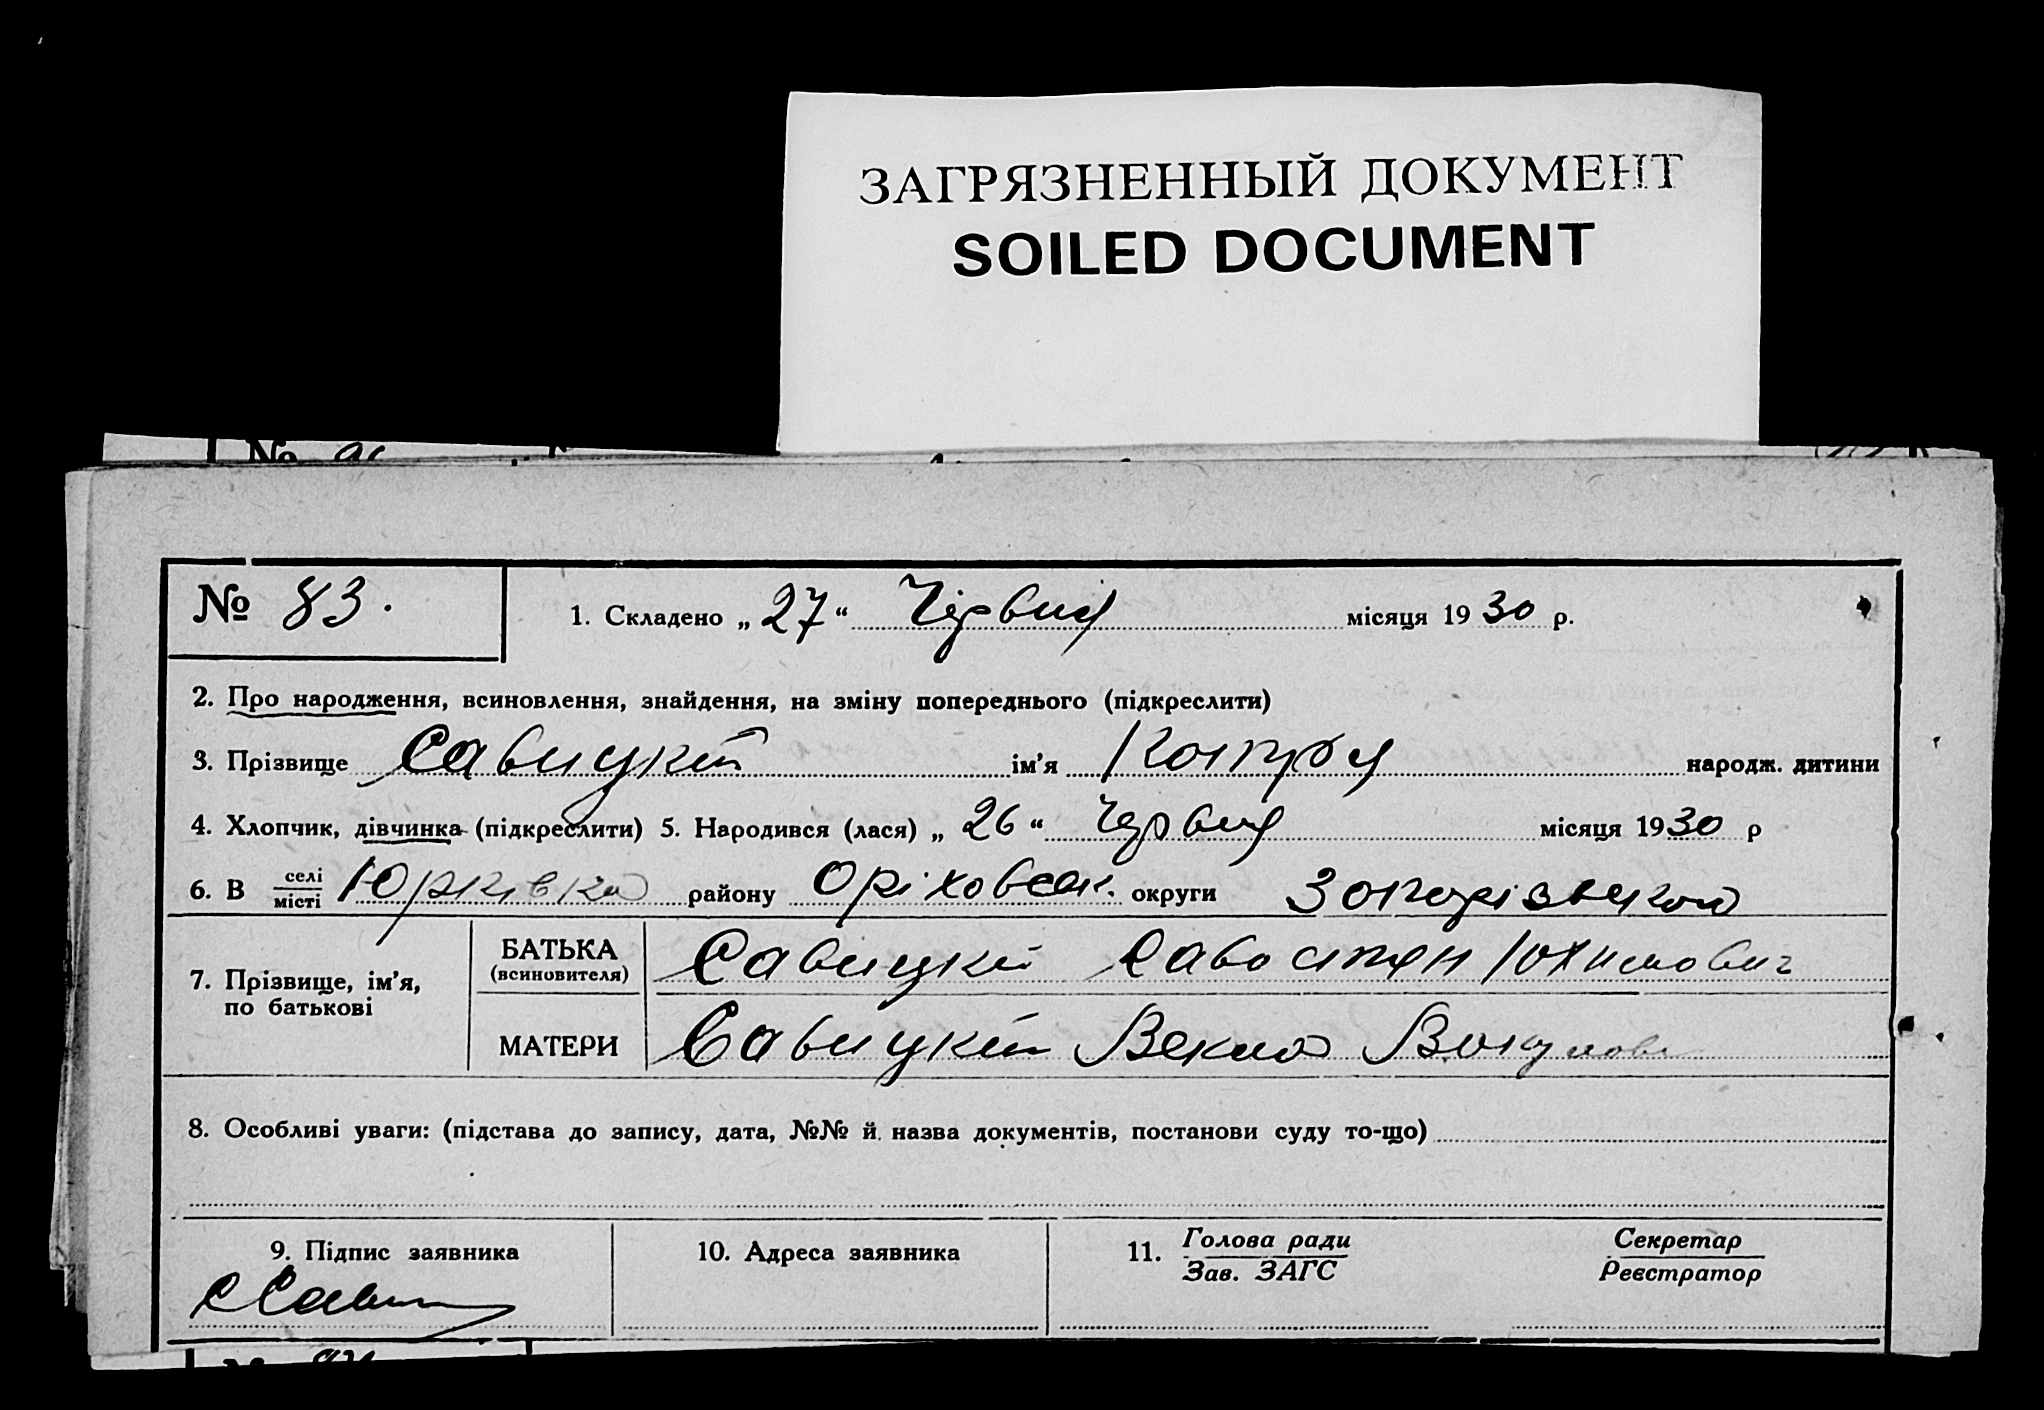 ЗАГРЯЗНЕННЫЙ ДОКУМЕНТ
SOILED DOCUMENT
№ 83.
1. Складено „27“ Червня місяця 1930 р.
2. Про народження, всиновлення, знайдення, на зміну попереднього (підкреслити)
3. Прізвище Савицкій ім’я народж. дитини
4. Хлопчик, дівчинка (підкреслити) 5. Народився (лася) „26“ Червня місяця 1930 р
6. В селі/місті Юрківка району Оріховськ. округи
7. Прізвище, ім’я, по батькові
БАТЬКА (всиновителя) Савицкій Савостян Юхимович
МАТЕРИ Савицкій Векла
8. Особливі уваги: (підстава до запису, дата, №№ й назва документів, постанови суду то-що)
9. Підпис заявника 10. Адреса заявника 11. Голова ради/Зав. ЗАГС Секретар/Реєстратор